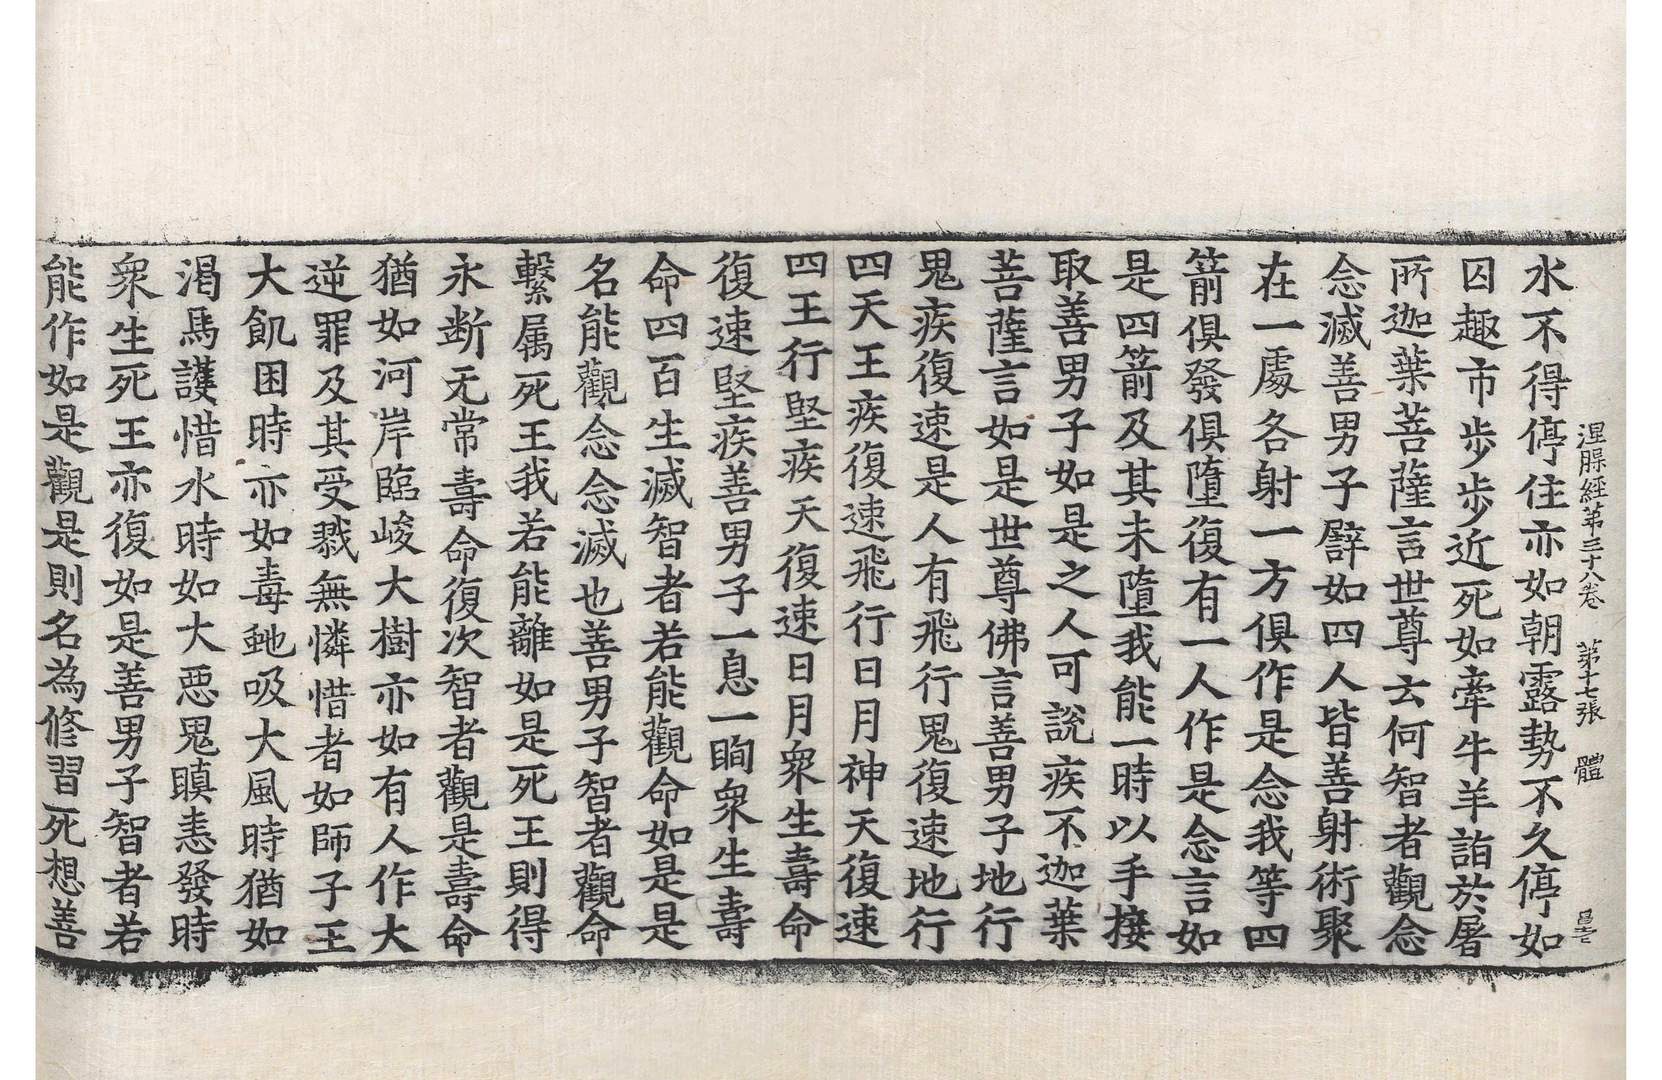 涅槃經第三十八卷　第十七張　體
水不得停住亦如朝露勢不久停如
囚趣市步步近死如牽牛羊詣於屠
所迦葉菩薩言世尊云何智者觀念
念滅善男子譬如四人皆善射術聚
在一處各射一方俱作是念我等四
箭俱發俱墮復有一人作是念言如
是四箭及其未墮我能一時以手接
取善男子如是之人可說疾不迦葉
菩薩言如是世尊佛言善男子地行
鬼疾復速是人有飛行鬼復速地行
四天王疾復速飛行日月神天復速
四王行堅疾天復速日月衆生壽命
復速堅疾善男子一息一眴衆生壽
命四百生滅智者若能觀命如是是
名能觀念念滅也善男子智者觀命
繫属死王我若能離如是死王則得
永断无常壽命復次智者觀是壽命
猶如河岸臨峻大樹亦如有人作大
逆罪及其受戮無憐惜者如師子王
大飢困時亦如毒虵吸大風時猶如
渴馬護惜水時如大惡鬼瞋恚發時
衆生死王亦復如是善男子智者若
能作如是觀是則名為修習死想善